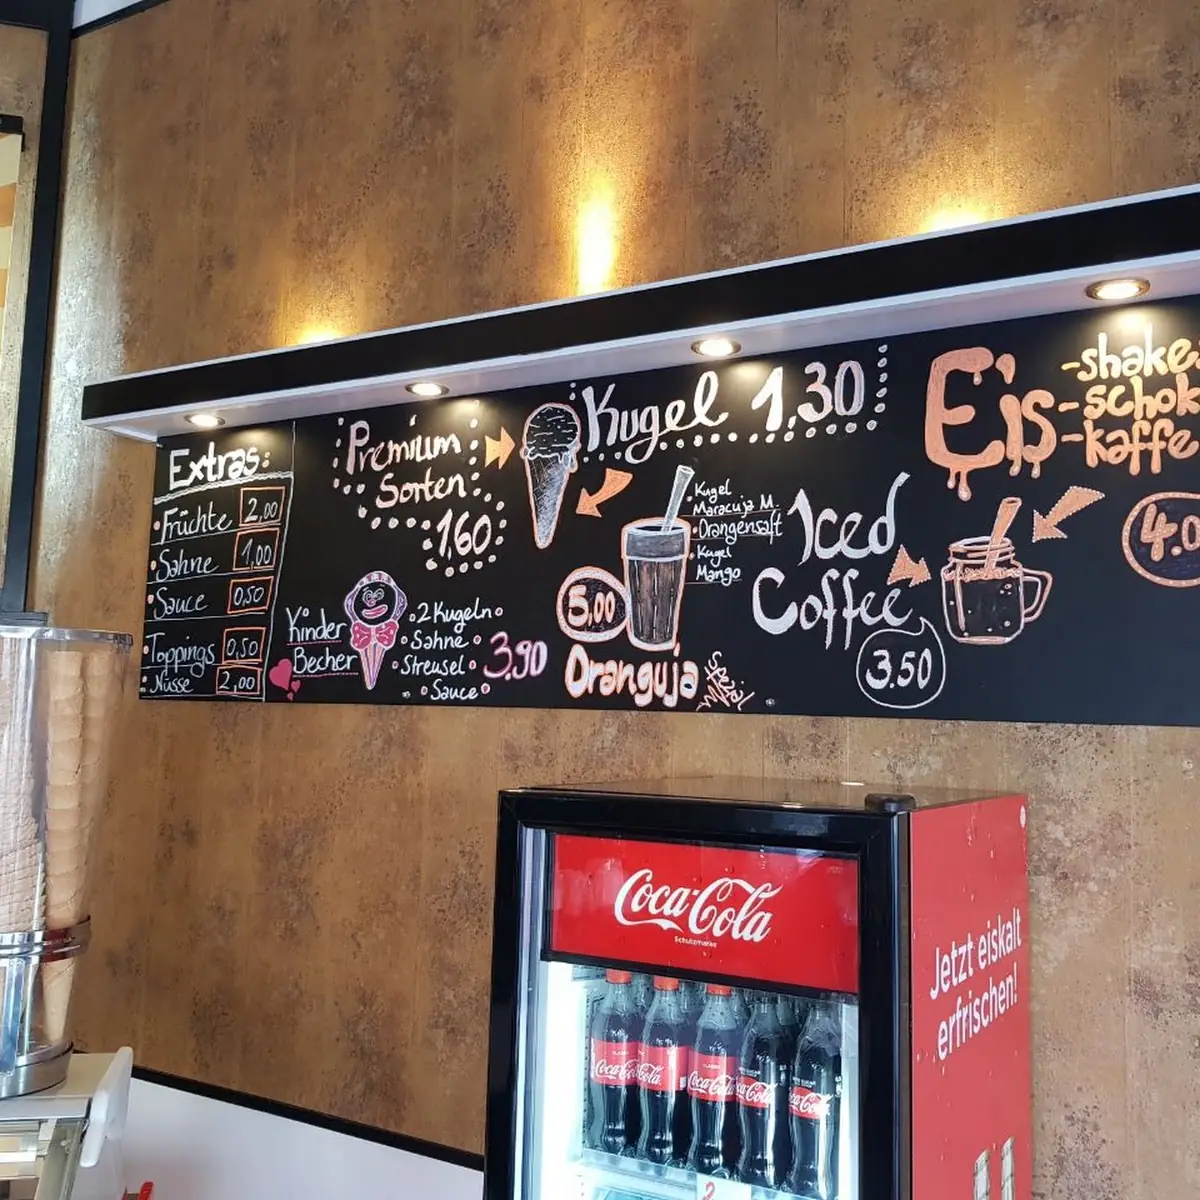 Extras:
• Früchte 2,00
• Sahne 1,00
• Sauce 0,50
• Toppings 0,50
• Nüsse 2,00
Premium
Sorten
1,60
Kugel 1,30
Kinder
Becher
• 2 Kugeln
• Sahne
• Streusel
• Sauce
3.90
5.00
Oranguja
Spezial
• Kugel
Maracuja M.
• Orangensaft
• Kugel
Mango
Iced
Coffee
3.50
Eis
-shake
-schok
-kaffe
4.0
Coca-Cola
Schutzmarke
Jetzt eiskalt
erfrischen!
Coca-Cola
Coca-Cola
Coca-Cola
Coca-Cola